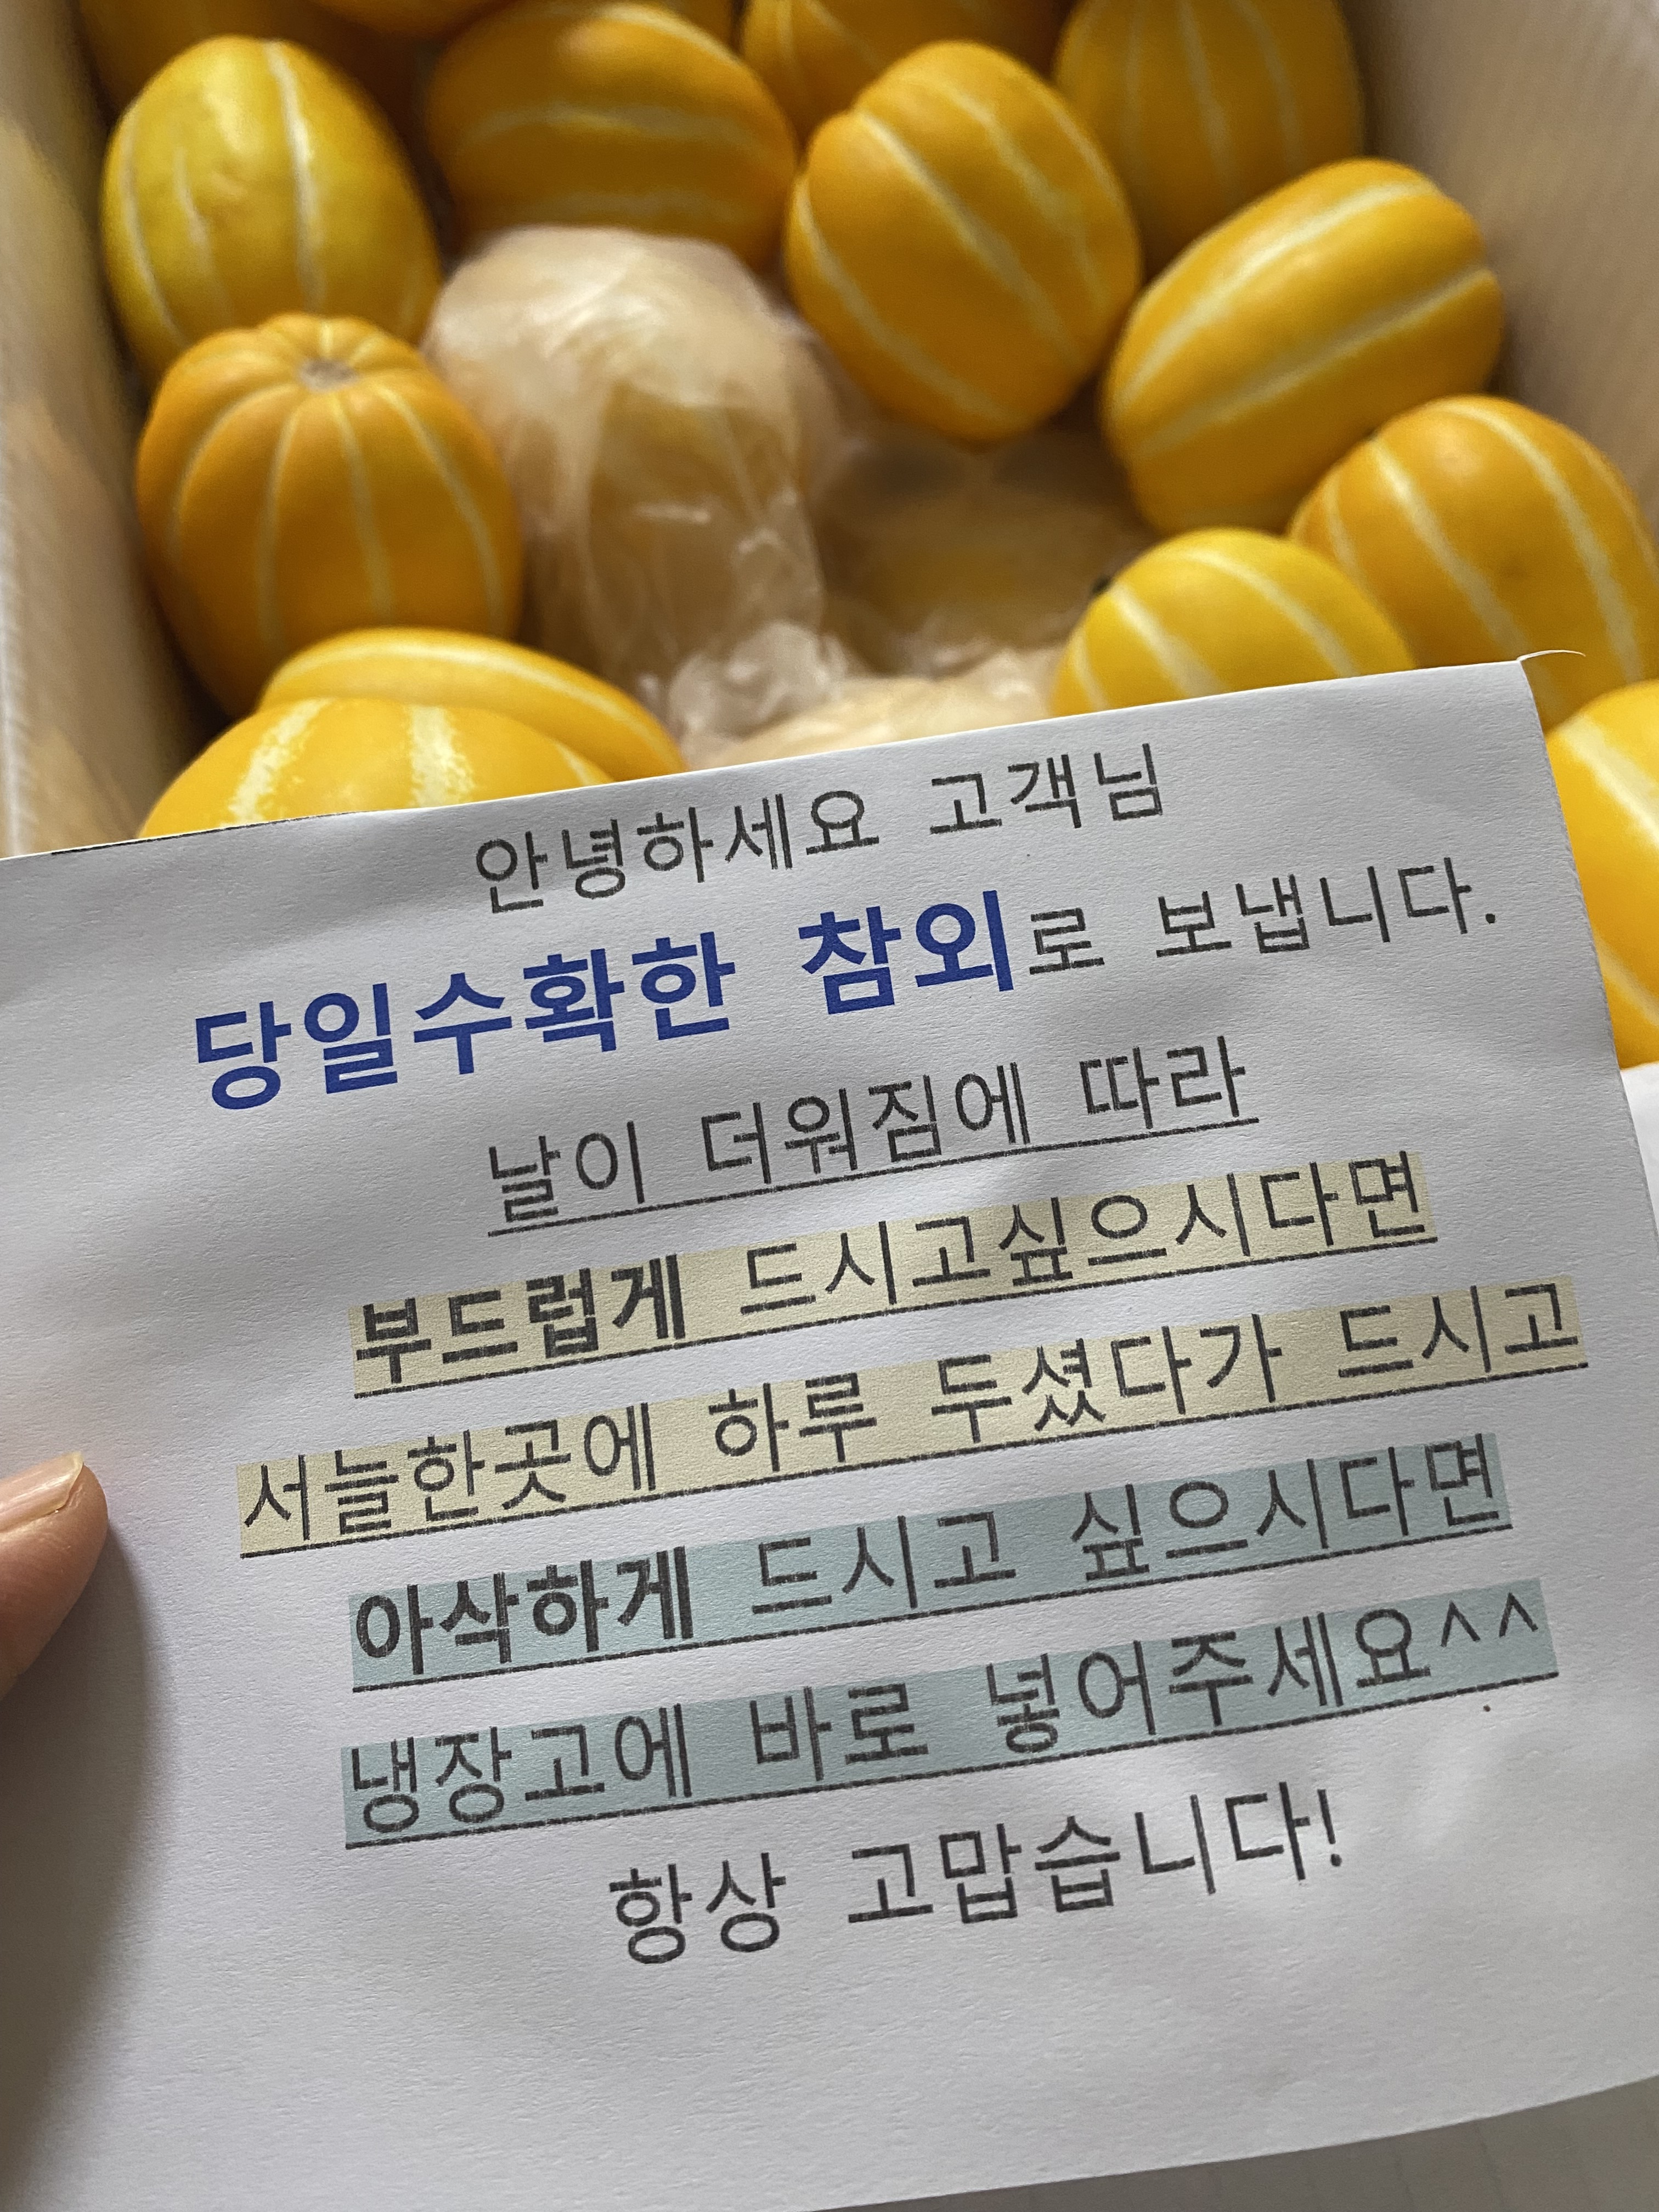 안녕하세요 고객님
당일수확한 참외로 보냅니다.
날이 더워짐에 따라
부드럽게 드시고싶으시다면
서늘한곳에 하루 두셨다가 드시고
아삭하게 드시고 싶으시다면
냉장고에 바로 넣어주세요^^
항상 고맙습니다!